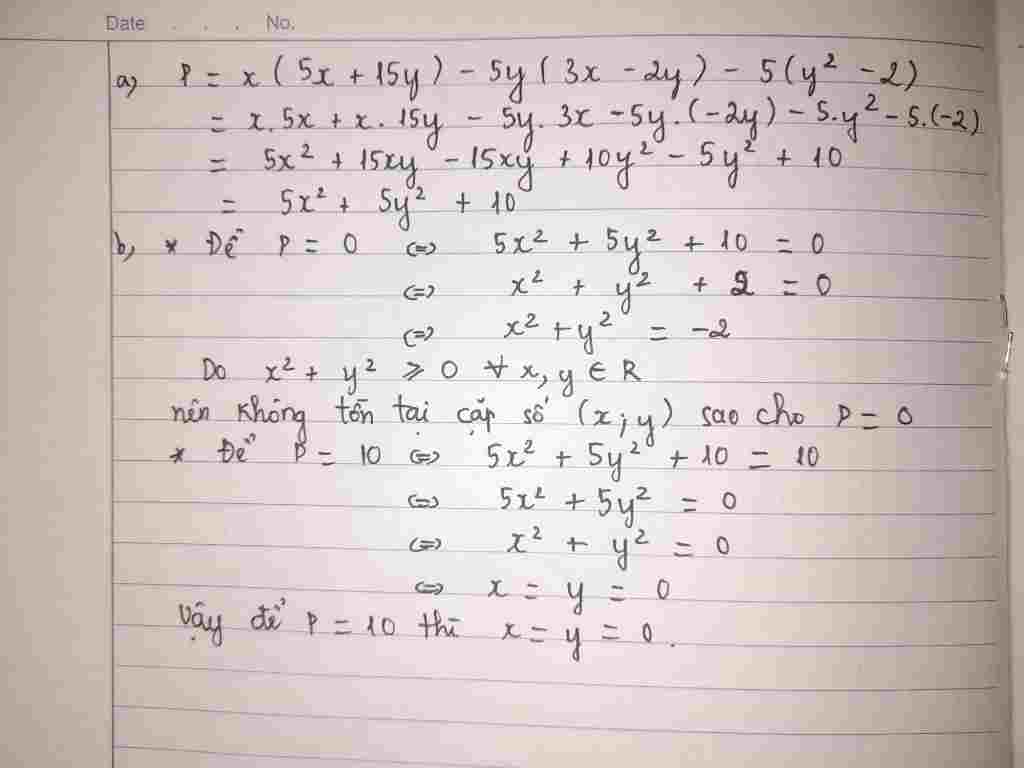 Date . . . No.
a) P = x ( 5x + 15y ) - 5y ( 3x - 2y ) - 5 ( y² - 2 )
= x. 5x + x. 15y - 5y. 3x - 5y. (-2y) - 5.y² - 5. (-2)
= 5x² + 15xy - 15xy + 10y² - 5y² + 10
= 5x² + 5y² + 10
b) * Để P = 0 <=> 5x² + 5y² + 10 = 0
<=> x² + y² + 2 = 0
<=> x² + y² = -2
Do x² + y² ⩾ 0 ∀ x, y ∈ R
nên không tồn tại cặp số (x ; y) sao cho P = 0
* Để P = 10 <=> 5x² + 5y² + 10 = 10
<=> 5x² + 5y² = 0
<=> x² + y² = 0
<=> x = y = 0
Vậy để P = 10 thì x = y = 0.